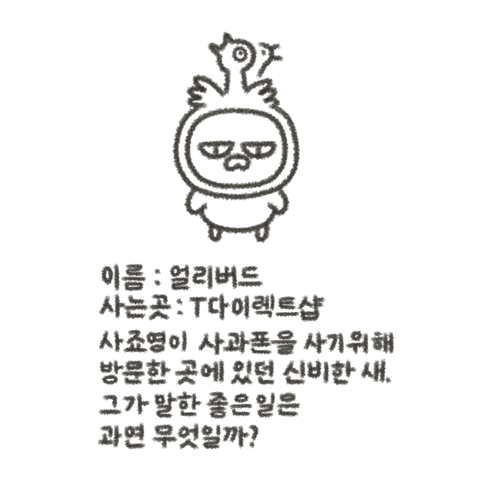 이름 : 얼리버드
사는곳 : T다이렉트샵
사죠영이 사과폰을 사기위해
방문한 곳에 있던 신비한 새.
그가 말한 좋은일은
과연 무엇일까?